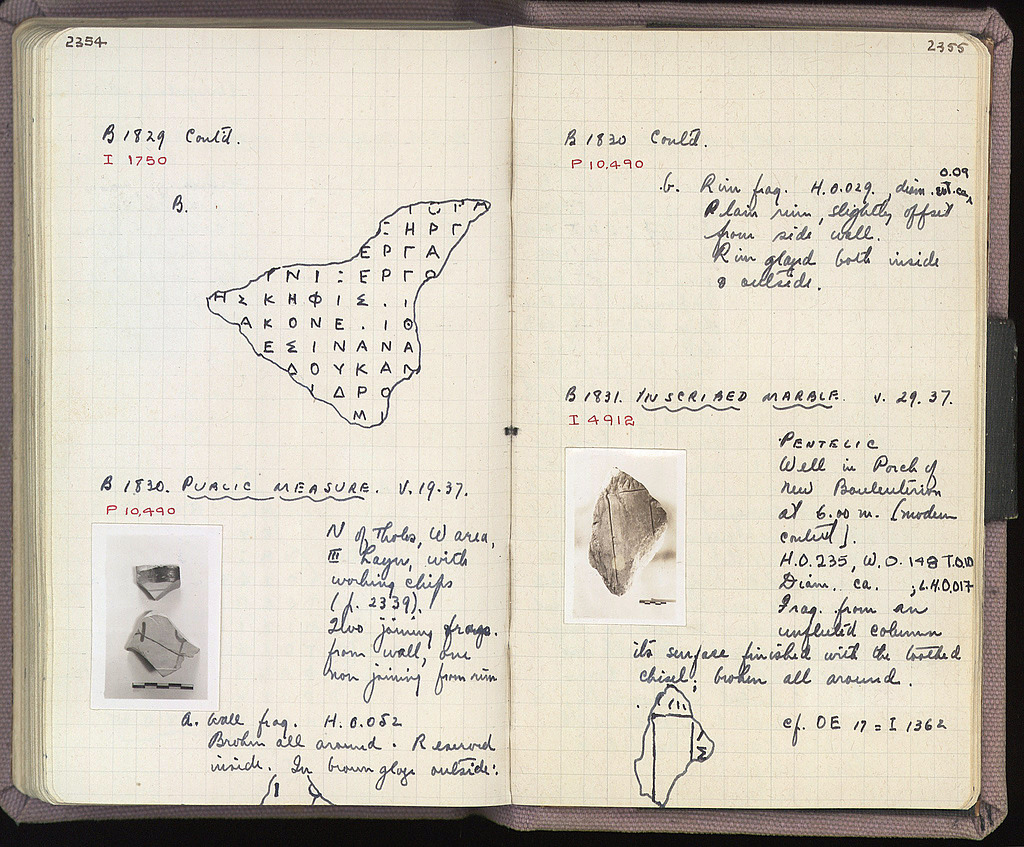 2354
B 1829 Cont'd.
I 1750
B.
Ι Ω Ρ Α
Ξ Η Ρ Γ
Ε Ρ Γ Α
Γ Ν Ι : Ε Ρ Γ Ο
Η Σ Κ Η Φ Ι Σ . Ι
Α Κ Ο Ν Ε . Ι Θ
Ε Σ Ι Ν Α Ν Α
Δ Ο Υ Κ Α Ν
Ι Δ Ρ Ο
Μ Ι
B 1830. PUBLIC MEASURE. V.19.37.
P 10,490
N of Tholos, W area,
III Layer, with
working chips
(p. 2339).
Two joining frags.
from wall, one
non joining from rim
a. Wall frag. H. 0.052
Broken all around. Reserved
inside. In brown glaze outside:
2355
B 1830 Cont'd.
P 10,490
b. Rim frag. H. 0.029, diam. est. ca. 0.09
Plain rim, slightly offset
from side wall.
Rim glazed both inside
& outside.
B 1831. INSCRIBED MARBLE. V. 29.37.
I 4912
PENTELIC
Well in Porch of
new Bouleuterion
at 6.00 m. [modern
context].
H. 0.235, W. 0.148 T.0.10
Diam. ca. ; L.H.0.017
Frag. from an
unfluted column
its surface finished with the toothed
chisel; broken all around.
cf. OE 17 = I 1362